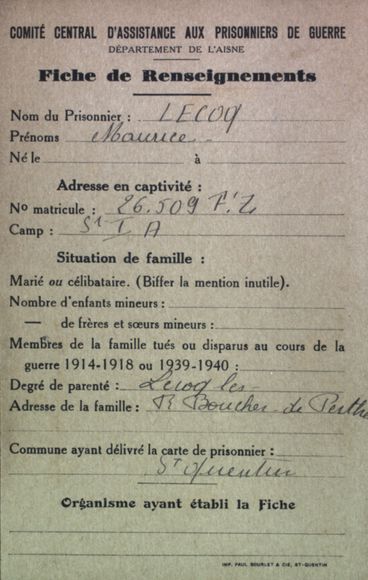 COMITÉ CENTRAL D'ASSISTANCE AUX PRISONNIERS DE GUERRE
DÉPARTEMENT DE L'AISNE
Fiche de Renseignements
Nom du Prisonnier : LECOQ
Prénoms Maurice
Né le à
Adresse en captivité :
No matricule : 26.509
Camp : St I A
Situation de famille :
Marié ou célibataire. (Biffer la mention inutile).
Nombre d'enfants mineurs :
— de frères et sœurs mineurs :
Membres de la famille tués ou disparus au cours de la
guerre 1914-1918 ou 1939-1940 :
Degré de parenté : Lecoq
Adresse de la famille : R Boucher de Perthe
Commune ayant délivré la carte de prisonnier :
St Quentin
Organisme ayant établi la Fiche
IMP. PAUL BOURLET & CIE, ST-QUENTIN